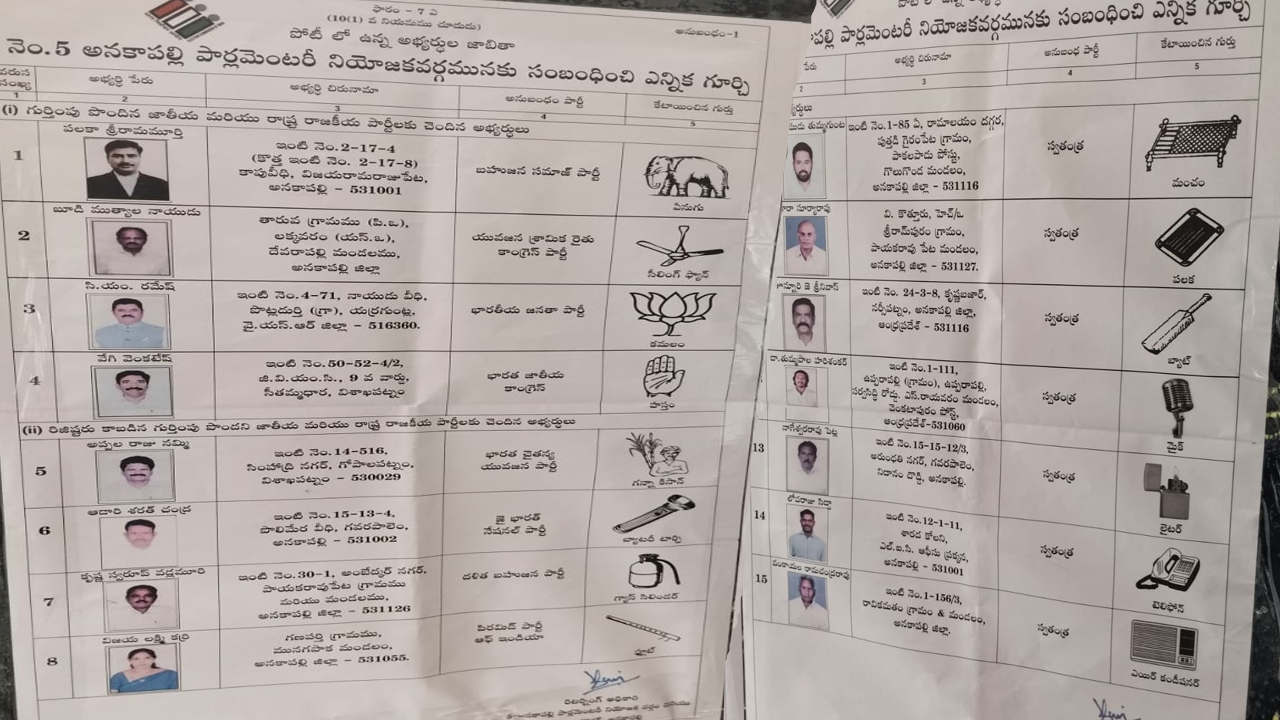 ఫారం - 7 ఏ
(10(1) వ నియమము చూడుడు)
అనుబంధం-1
పోటీ లో ఉన్న అభ్యర్థుల జాబితా
నెం.5 అనకాపల్లి పార్లమెంటరీ నియోజకవర్గమునకు సంబంధించి ఎన్నిక గూర్చి
వరుస సంఖ్య అభ్యర్థి పేరు అభ్యర్థి చిరునామా అనుబంధం పార్టీ కేటాయించిన గుర్తు
1 2 3 4 5
(i) గుర్తింపు పొందిన జాతీయ మరియు రాష్ట్ర రాజకీయ పార్టీలకు చెందిన అభ్యర్థులు
1
పలకా శ్రీరామమూర్తి
ఇంటి నెం.2-17-4
(కొత్త ఇంటి నెం. 2-17-8)
కాపువీధి, విజయరామరాజుపేట,
అనకాపల్లి - 531001
బహుజన సమాజ్ పార్టీ
ఏనుగు
2
బూడి ముత్యాల నాయుడు
తారువ గ్రామము (పి.ఒ),
లక్కవరం (యస్.ఒ),
దేవరాపల్లి మండలము,
అనకాపల్లి జిల్లా
యువజన శ్రామిక రైతు
కాంగ్రెస్ పార్టీ
సీలింగ్ ఫ్యాన్
3
సి.యం. రమేష్
ఇంటి నెం.4-71, నాయుడు వీధి,
పొట్లదుర్తి (గ్రా), యర్రగుంట్ల,
వై.యస్.ఆర్ జిల్లా - 516360.
భారతీయ జనతా పార్టీ
కమలం
4
వేగి వెంకటేష్
ఇంటి నెం.50-52-4/2,
జి.వి.యం.సి., 9 వ వార్డు,
సీతమ్మధార, విశాఖపట్నం
భారత జాతీయ
కాంగ్రెస్
హస్తం
(ii) రిజిష్టరు కాబడిన గుర్తింపు పొందని జాతీయ మరియు రాష్ట్ర రాజకీయ పార్టీలకు చెందిన అభ్యర్థులు
5
అప్పల రాజు నమ్మి
ఇంటి నెం.14-516,
సింహాద్రి నగర్, గోపాలపట్నం,
విశాఖపట్నం - 530029
భారత చైతన్య
యువజన పార్టీ
గన్నా కిసాన్
6
ఆడారి శరత్ చంద్ర
ఇంటి నెం.15-13-4,
పొలిమేర వీధి, గవరపాలెం,
అనకాపల్లి - 531002
జై భారత్
నేషనల్ పార్టీ
బ్యాటరీ టార్చి
7
కృష్ణ స్వరూప్ వడ్లమూరి
ఇంటి నెం.30-1, అంబేద్కర్ నగర్,
పాయకరావుపేట గ్రామము
మరియు మండలము,
అనకాపల్లి జిల్లా - 531126
దళిత బహుజన పార్టీ
గ్యాస్ సిలిండర్
8
విజయ లక్ష్మి కర్రి
గణపర్తి గ్రామము,
మునగపాక మండలం,
అనకాపల్లి జిల్లా - 531055.
పిరమిడ్ పార్టీ
ఆఫ్ ఇండియా
ఫ్లూట్
రిటర్నింగ్ అధికారి
పార్లమెంటరీ నియోజక వర్గము మరియు
పార్లమెంటరీ నియోజకవర్గమునకు సంబంధించి ఎన్నిక గూర్చి
పేరు అభ్యర్థి చిరునామా అనుబంధ పార్టీ కేటాయించిన గుర్తు
2 3 4 5
తుమ్మగుంట
ఇంటి నెం.1-85 ఏ, రామాలయం దగ్గర,
పుత్తడి గైరంపేట గ్రామం,
పాకలపాడు పోస్టు,
గొలుగొండ మండలం,
అనకాపల్లి జిల్లా - 531116
స్వతంత్ర
మంచం
సూర్యారావు
వి. కొత్తూరు, హెచ్/ఒ
శ్రీరామ్‌పురం గ్రామం,
పాయకరావు పేట మండలం,
అనకాపల్లి జిల్లా - 531127.
స్వతంత్ర
పలక
జె శ్రీనివాస్
ఇంటి నెం. 24-3-8, కృష్ణబజార్,
నర్సీపట్నం, అనకాపల్లి జిల్లా,
ఆంధ్రప్రదేశ్ - 531116
స్వతంత్ర
బ్యాట్
డా.తుమ్మపాల హరిశంకర్
ఇంటి నెం.1-111,
ఉప్పరాపల్లి (గ్రామం), ఉప్పరాపల్లి,
సర్వసిద్ది రోడ్డు, ఎస్.రాయవరం మండలం,
వెంకటాపురం పోస్ట్,
ఆంధ్రప్రదేశ్-531060
స్వతంత్ర
మైక్
13
నాగేశ్వరరావు పెట్ల
ఇంటి నెం.15-15-12/3,
అరుంధతి నగర్, గవరపాలెం,
నిదానం దొడ్డి, అనకాపల్లి.
స్వతంత్ర
లైటర్
14
లోవరాజు సిద్దా
ఇంటి నెం.12-1-11,
శారద కోలని,
ఎల్.ఐ.సి. ఆఫీసు ప్రక్కన,
అనకాపల్లి - 531001
స్వతంత్ర
టెలిఫోన్
15
వంకాయల రామచంద్రరావు
ఇంటి నెం.1-156/3,
రావికమతం గ్రామం & మండలం,
అనకాపల్లి జిల్లా.
స్వతంత్ర
ఎయిర్ కండీషనర్